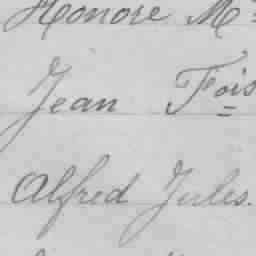 Honoré M
Jean Fois
Alfred Jules.